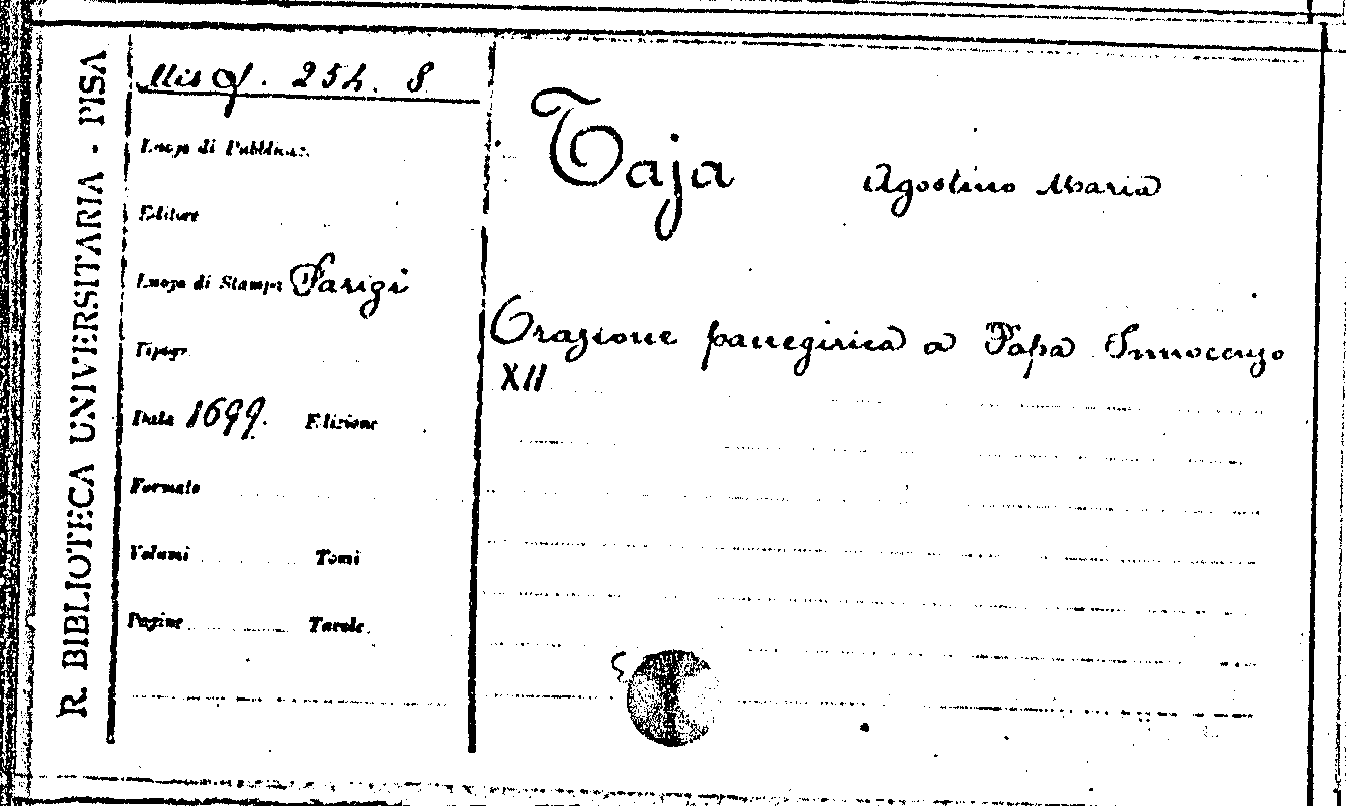 R. BIBLIOTECA UNIVERSITARIA - PISA
Misc. 254. 8
Luogo di Pubblicaz.
Editore
Luogo di Stampa Parigi
Tipogr.
Data 1699. Edizione
Formato
Volumi Tomi
Pagine Tavole
Taja Agostino Maria
Orazione panegirica a Papa Innocenzo
XII